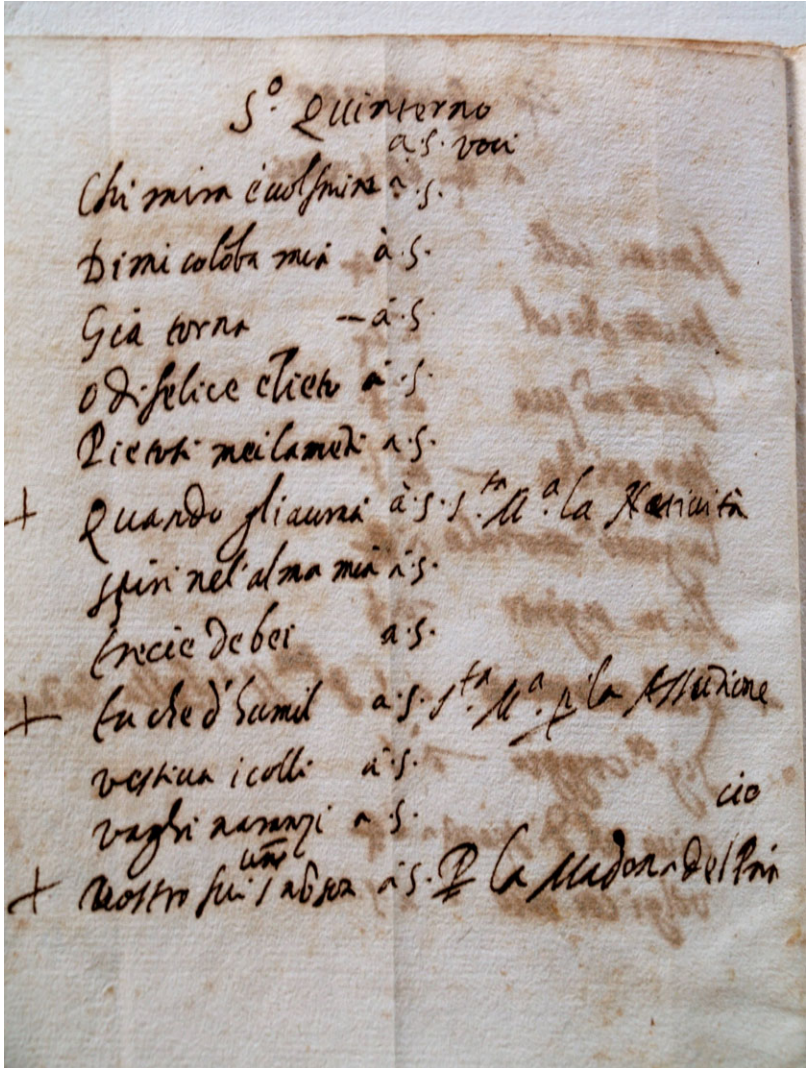 5º Quinterno
a. 5. voci
Chi mira à. 5.
Dimi colõba mia à 5.
Gia torna — à. 5.
o di felice e lieto à. 5.
Pietosi miei lameti a. 5.
+ Quando gli à. 5. S.ta M.a la Natività
spiri nel'alma mia à 5.
trecie de bei a. 5.
+ tu che d'humil a. 5. S.ta M.a p la Assūtione
vestiva i colli à 5.
vaghi naranzi a 5.
+ Vostro fui à 5. P la Madona del Para
cio